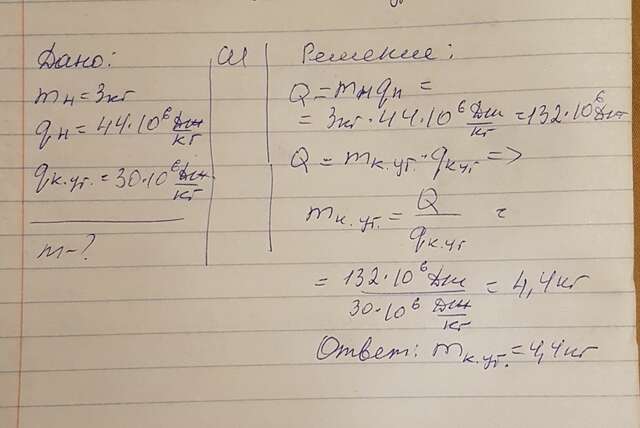 Дано:
mн = 3кг
qн = 44·10⁶ Дж/кг
qк.уг. = 30·10⁶ Дж/кг
m-?
СИ
Решение:
Q = mнqн =
= 3кг · 44·10⁶ Дж/кг = 132·10⁶ Дж
Q = mк.уг. · qк.уг =>
mк.уг. = Q/qк.уг =
= 132·10⁶ Дж / 30·10⁶ Дж/кг = 4,4кг
Ответ: mк.уг. = 4,4кг